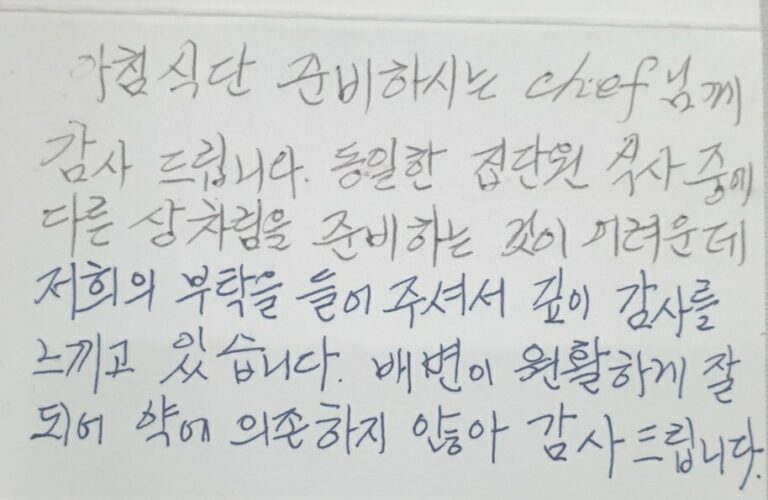 아침식단 준비하시는 chef님께
감사 드립니다. 동일한 집단원 식사 중에
다른 상차림을 준비하는 것이 어려운데
저희의 부탁을 들어 주셔서 깊이 감사를
느끼고 있습니다. 배변이 원활하게 잘
되어 약에 의존하지 않아 감사드립니다.